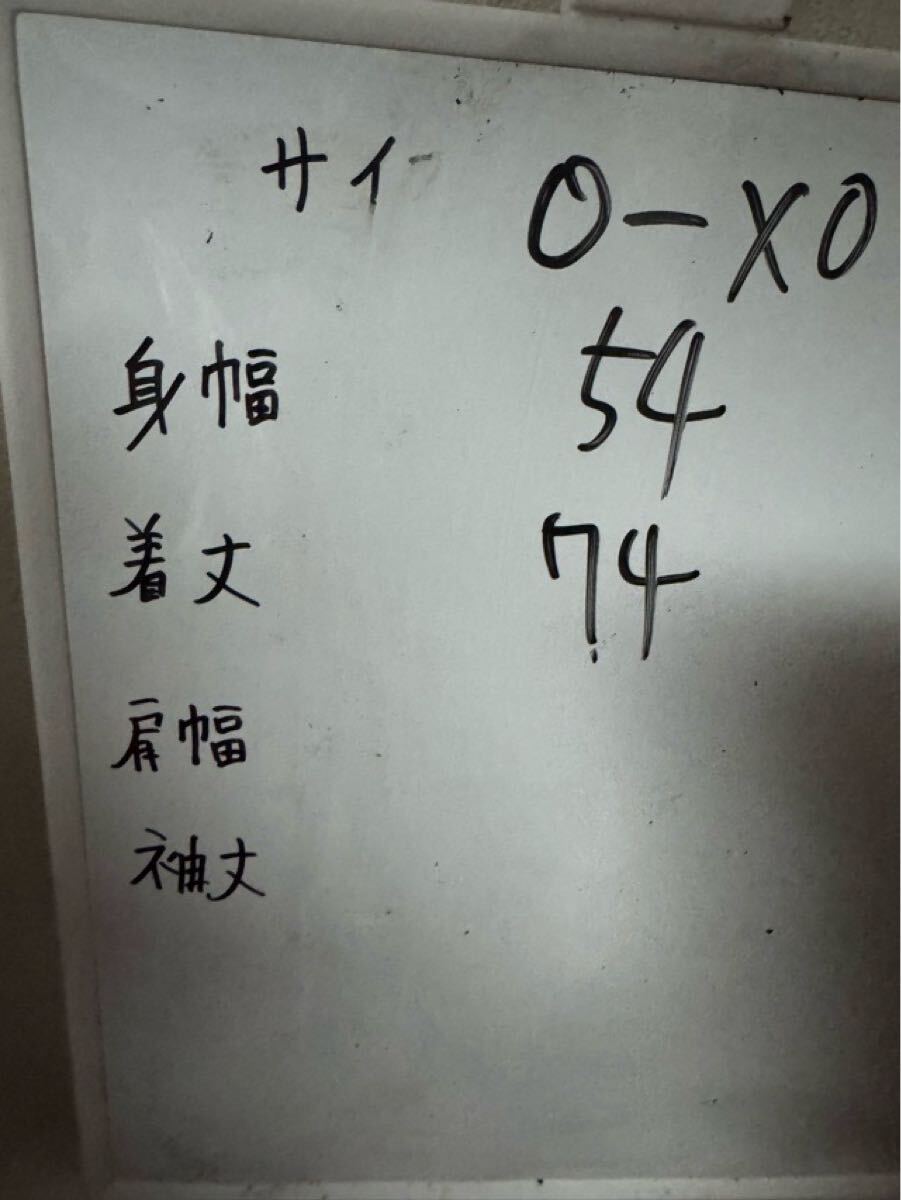 サイ O-XO
身幅 54
着丈 74
肩幅
袖丈